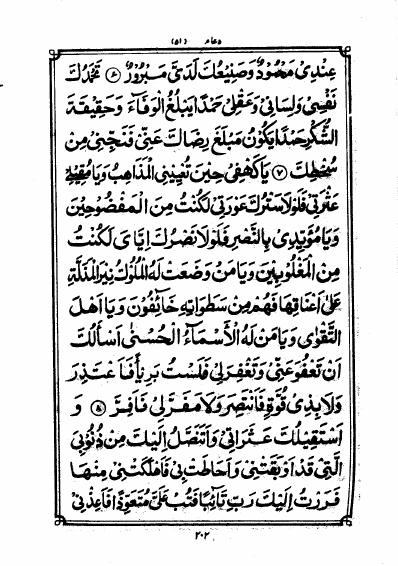 دعاء (۵۱)
عِنْدِيْ مَحْمُوْدٌ وَصَنِيْعُكَ لَدَيَّ مَبْرُوْرٌ ۝۶ تَحْمَدُكَ
نَفْسِيْ وَلِسَانِيْ وَعَقْلِيْ حَمْدًا يَبْلُغُ الْوَفَآءَ وَحَقِيْقَةَ
الشُّكْرِ حَمْدًا يَكُوْنُ مَبْلَغَ رِضَاكَ عَنِّيْ فَنَجِّنِيْ مِنْ
سُخْطِكَ ۝۷ يَا كَهْفِيْ حِيْنَ تُعْيِيْنِي الْمَذَاهِبُ وَيَا مُقِيْلِيْ
عَثْرَتِيْ فَلَوْلَا سَتْرُكَ عَوْرَتِيْ لَكُنْتُ مِنَ الْمَفْضُوْحِيْنَ
وَيَا مُؤَيِّدِيْ بِالنَّصْرِ فَلَوْلَا نَصْرُكَ اِيَّايَ لَكُنْتُ
مِنَ الْمَغْلُوْبِيْنَ وَيَا مَنْ وَضَعَتْ لَهُ الْمُلُوْكُ نِيْرَ الْمَذَلَّةِ
عَلٰى اَعْنَاقِهَا فَهُمْ مِنْ سَطَوَاتِهٖ خَآئِفُوْنَ وَيَا اَهْلَ
التَّقْوٰى وَيَا مَنْ لَهُ الْاَسْمَآءُ الْحُسْنٰى اَسْاَلُكَ
اَنْ تَعْفُوَ عَنِّيْ وَتَغْفِرَ لِيْ فَلَسْتُ بَرِيْٓأً فَاَعْتَذِرَ
وَلَا بِذِيْ قُوَّةٍ فَاَنْتَصِرَ وَلَا مَفَرَّ لِيْ فَاَفِرَّ ۝۸ وَ
اَسْتَقِيْلُكَ عَثَرَاتِيْ وَاَتَنَصَّلُ اِلَيْكَ مِنْ ذُنُوْبِيَ
الَّتِيْ قَدْ اَوْبَقَتْنِيْ وَاَحَاطَتْ بِيْ فَاَهْلَكَتْنِيْ مِنْهَا
فَرَرْتُ اِلَيْكَ رَبِّ تَآئِبًا فَتُبْ عَلَيَّ مُتَعَوِّذًا فَاَعِذْنِيْ
۲۰۲